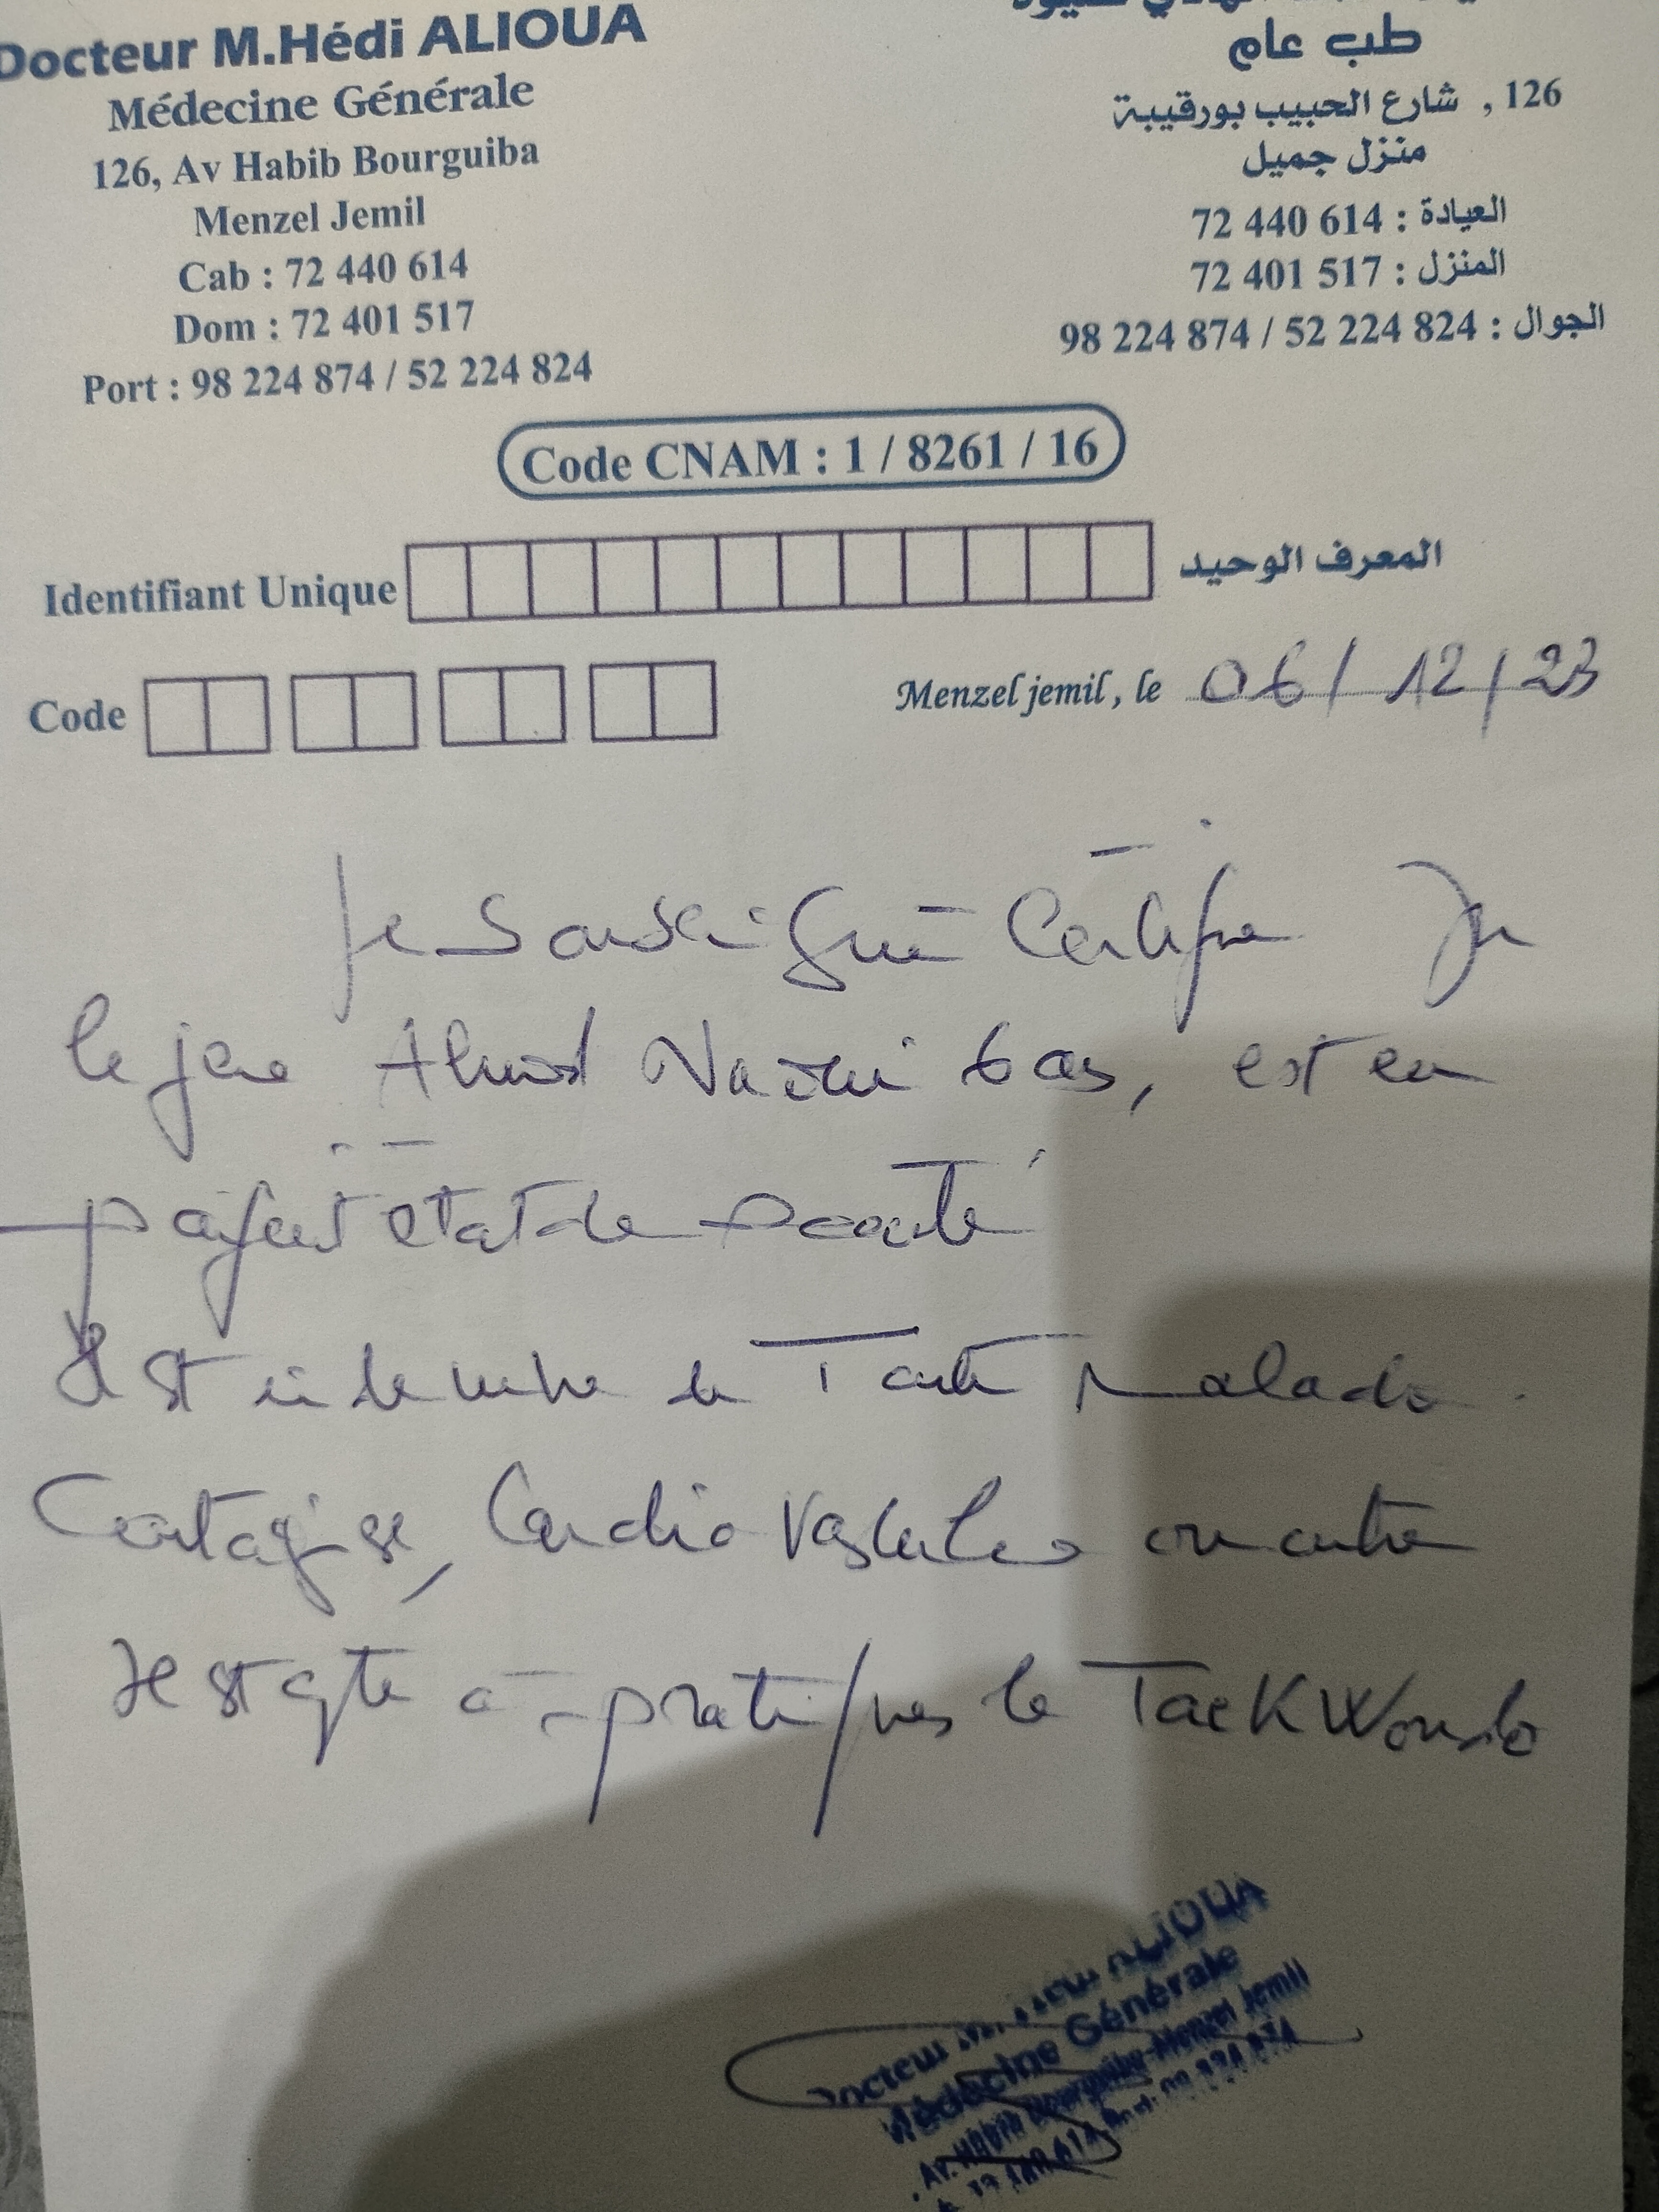 Docteur M.Hédi ALIOUA
Médecine Générale
126, Av Habib Bourguiba
Menzel Jemil
Cab : 72 440 614
Dom : 72 401 517
Port : 98 224 874 / 52 224 824
طب عام
126 , شارع الحبيب بورقيبة
منزل جميل
العيادة : 72 440 614
المنزل : 72 401 517
الجوال : 98 224 874 / 52 224 824
Code CNAM : 1 / 8261 / 16
Identifiant Unique المعرف الوحيد
Code
Menzel jemil, le 06 / 12 / 23
Je Soussigné Certifie que
le jeune Ahmed 6 ans, est en
parfait état de santé
Il est indemne de Toute Maladie
Contagieuse, Cardio Vasculaire ou autre
Il est apte à pratiquer le TaeKWondo
Docteur ALIOUA
Médecine Générale
Av. Habib Bourguiba-Menzel Jemil